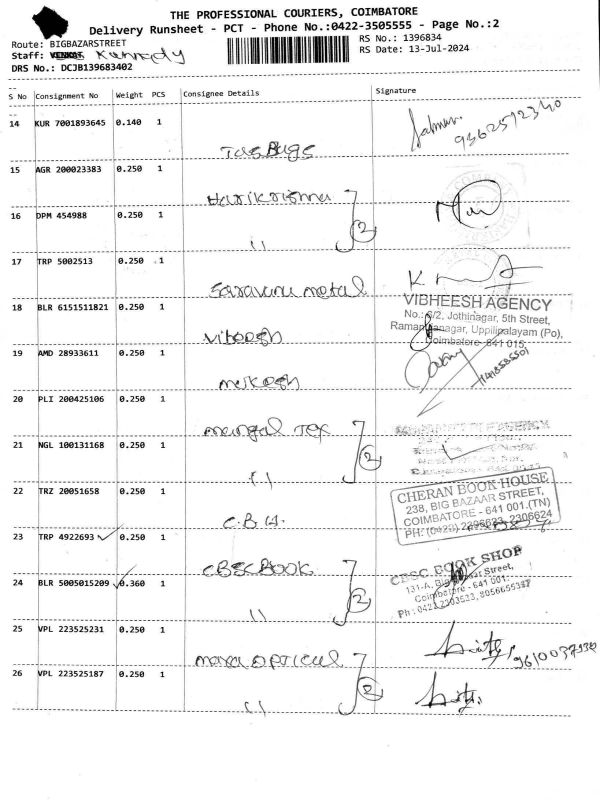 THE PROFESSIONAL COURIERS, COIMBATORE
Delivery Runsheet - PCT - Phone No.:0422-3505555 - Page No.:2
Route: BIGBAZARSTREET
RS No.: 1396834
Staff: Kennedy
RS Date: 13-Jul-2024
DRS No.: DCJB139683402
S No Consignment No Weight PCS Consignee Details Signature
14 KUR 7001893645 0.140 1
Tas Bags
9362512340
15 AGR 200023383 0.250 1
Harikrishna
16 DPM 454988 0.250 1
11 2
17 TRP 5002513 0.250 1
Saravana metal
18 BLR 6151511821 0.250 1
VIBHEESH AGENCY
No.: 6/2, Jothinagar, 5th Street,
Ramanathanagar, Uppilipalayam (Po),
Coimbatore - 641 015
Vibeesh
19 AMD 28933611 0.250 1
Mukesh
20 PLI 200425106 0.250 1
Mangal Tex
21 NGL 100131168 0.250 1
11 2
22 TRZ 20051658 0.250 1
C.B.H.
CHERAN BOOK HOUSE
238, BIG BAZAAR STREET,
COIMBATORE - 641 001.(TN)
PH: (0422) 2306623, 2306624
23 TRP 4922693 0.250 1
CBSC BOOK
CBSC BOOK SHOP
131-A, Big Bazaar Street,
Coimbatore - 641 001.
Ph: 0422 2303533, 8056655387
24 BLR 5005015209 0.360 1
11 2
25 VPL 223525231 0.250 1
Mara optical
9610037930
26 VPL 223525187 0.250 1
11 2